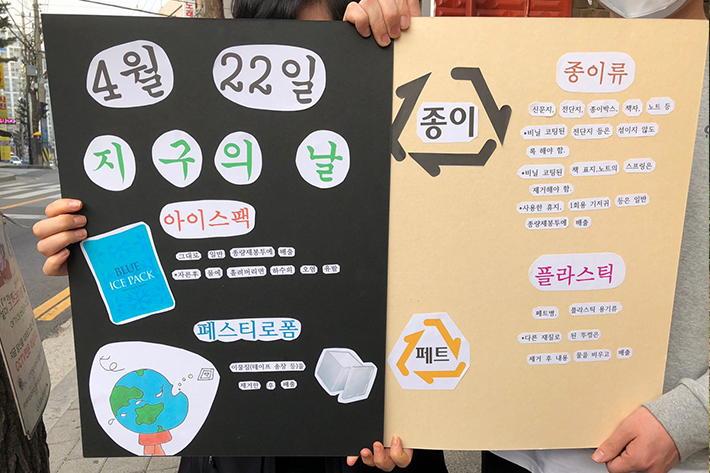 4월 22일
지구의 날
아이스팩
그대로 일반 종량제봉투에 배출
•자른후 물에 흘려버리면 하수의 오염 유발
BLUE
ICE PACK
페스티로폼
이물질(테이프 송장 등)을
제거한 후 배출
종이
종이류
신문지, 전단지, 종이박스, 책자, 노트 등
•비닐 코팅된 전단지 등은 섞이지 않도
록 해야 함.
•비닐 코팅된 책 표지,노트의 스프링은
제거해야 함.
•사용한 휴지, 1회용 기저귀 등은 일반
종량제봉투에 배출
플라스틱
페트병, 플라스틱 용기류
•다른 재질로 된 뚜껑은
제거 후 내용 물을 비우고 배출
페트